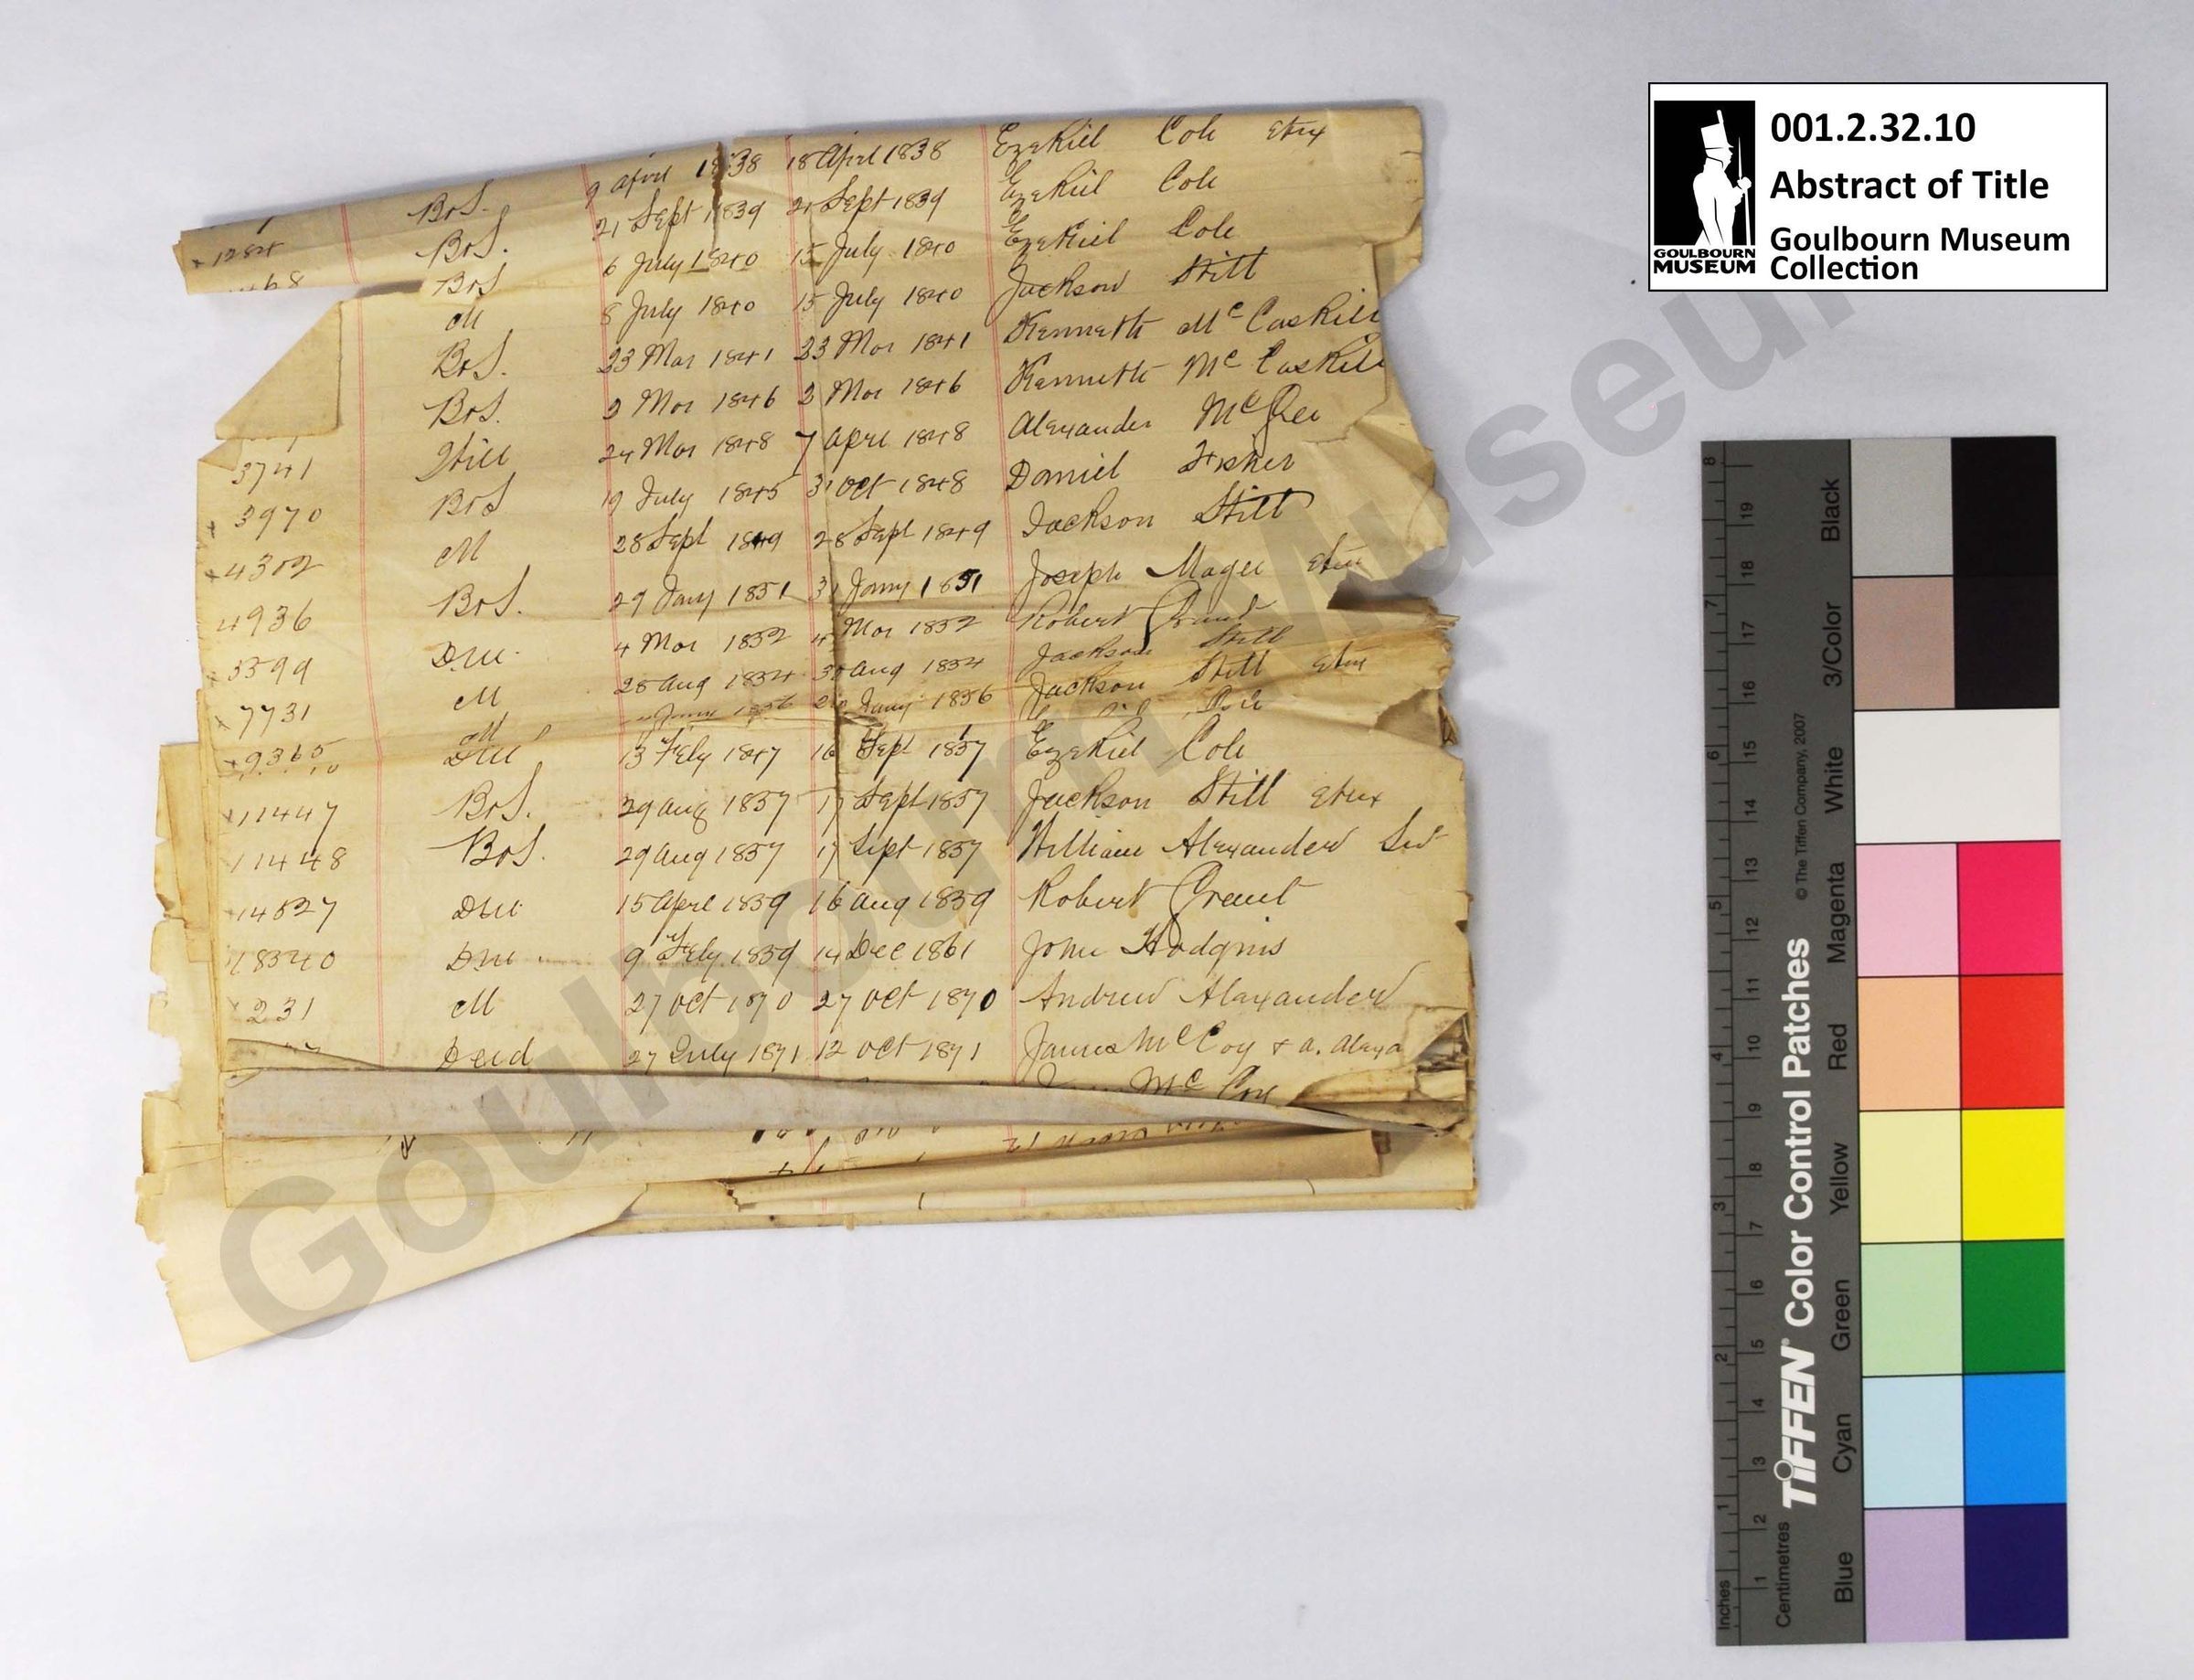 001.2.32.10
Abstract of Title
Goulbourn Museum
Collection
GOULBOURN
MUSEUM
BrS. 9 April 1838 18 April 1838 Ezekiel Cole etux
1284 BrS. 21 Sept 1839 21 Sept 1839 Ezekiel Cole
BrS 6 July 1840 15 July 1840 Ezekiel Cole
M 8 July 1840 15 July 1840 Jackson Stitt
BrS. 23 Mar 1841 23 Mar 1841 Kenneth McCaskill
BrS. 2 Mar 1846 2 Mar 1846 Kenneth McCaskill
3741 Will 24 Mar 1848 7 April 1848 Alexander McGee
3970 BrS 19 July 1845 31 Oct 1848 Daniel Fisher
4302 M 28 Sept 1849 28 Sept 1849 Jackson Stitt
4936 BrS. 29 Jany 1851 31 Jany 1851 Joseph Magee etux
5599 DM. 4 Mar 1852 4 Mar 1852 Robert Grant
7731 M 28 Aug 1854 30 Aug 1854 Jackson Stitt
9365 M Jany 1856 Jany 1856 Jackson Stitt etux
DM 13 Feby 1847 16 Sept 1857 Ezekiel Cole
11447 BrS. 29 Aug 1857 17 Sept 1857 Jackson Stitt etux
11448 BrS. 29 Aug 1857 17 Sept 1857 William Alexander Senr
14527 DM. 15 April 1859 16 Aug 1859 Robert Grant
18340 DM 9 Feby 1859 14 Dec 1861 John Hodgins
231 M 27 Oct 1870 27 Oct 1870 Andrew Alexander
Deed 27 July 1871 12 Oct 1871 James McCoy & A. Alexa
McCoy
Goulbourn Museum
TIFFEN® Color Control Patches
© The Tiffen Company, 2007
Inches 1 2 3 4 5 6 7 8
Centimetres 1 2 3 4 5 6 7 8 9 10 11 12 13 14 15 16 17 18 19
Blue Cyan Green Yellow Red Magenta White 3/Color Black